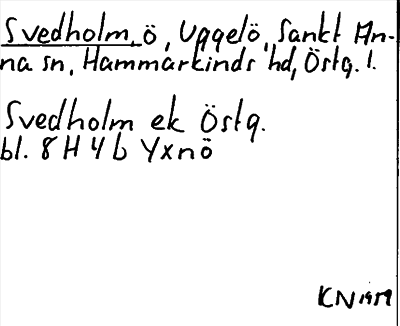 Svedholm, ö, Uggelö, Sankt An-
na sn, Hammarkinds hd, Östg. l.
Svedholm ek Östg.
bl. 8 H 4 b Yxnö
KN 1979